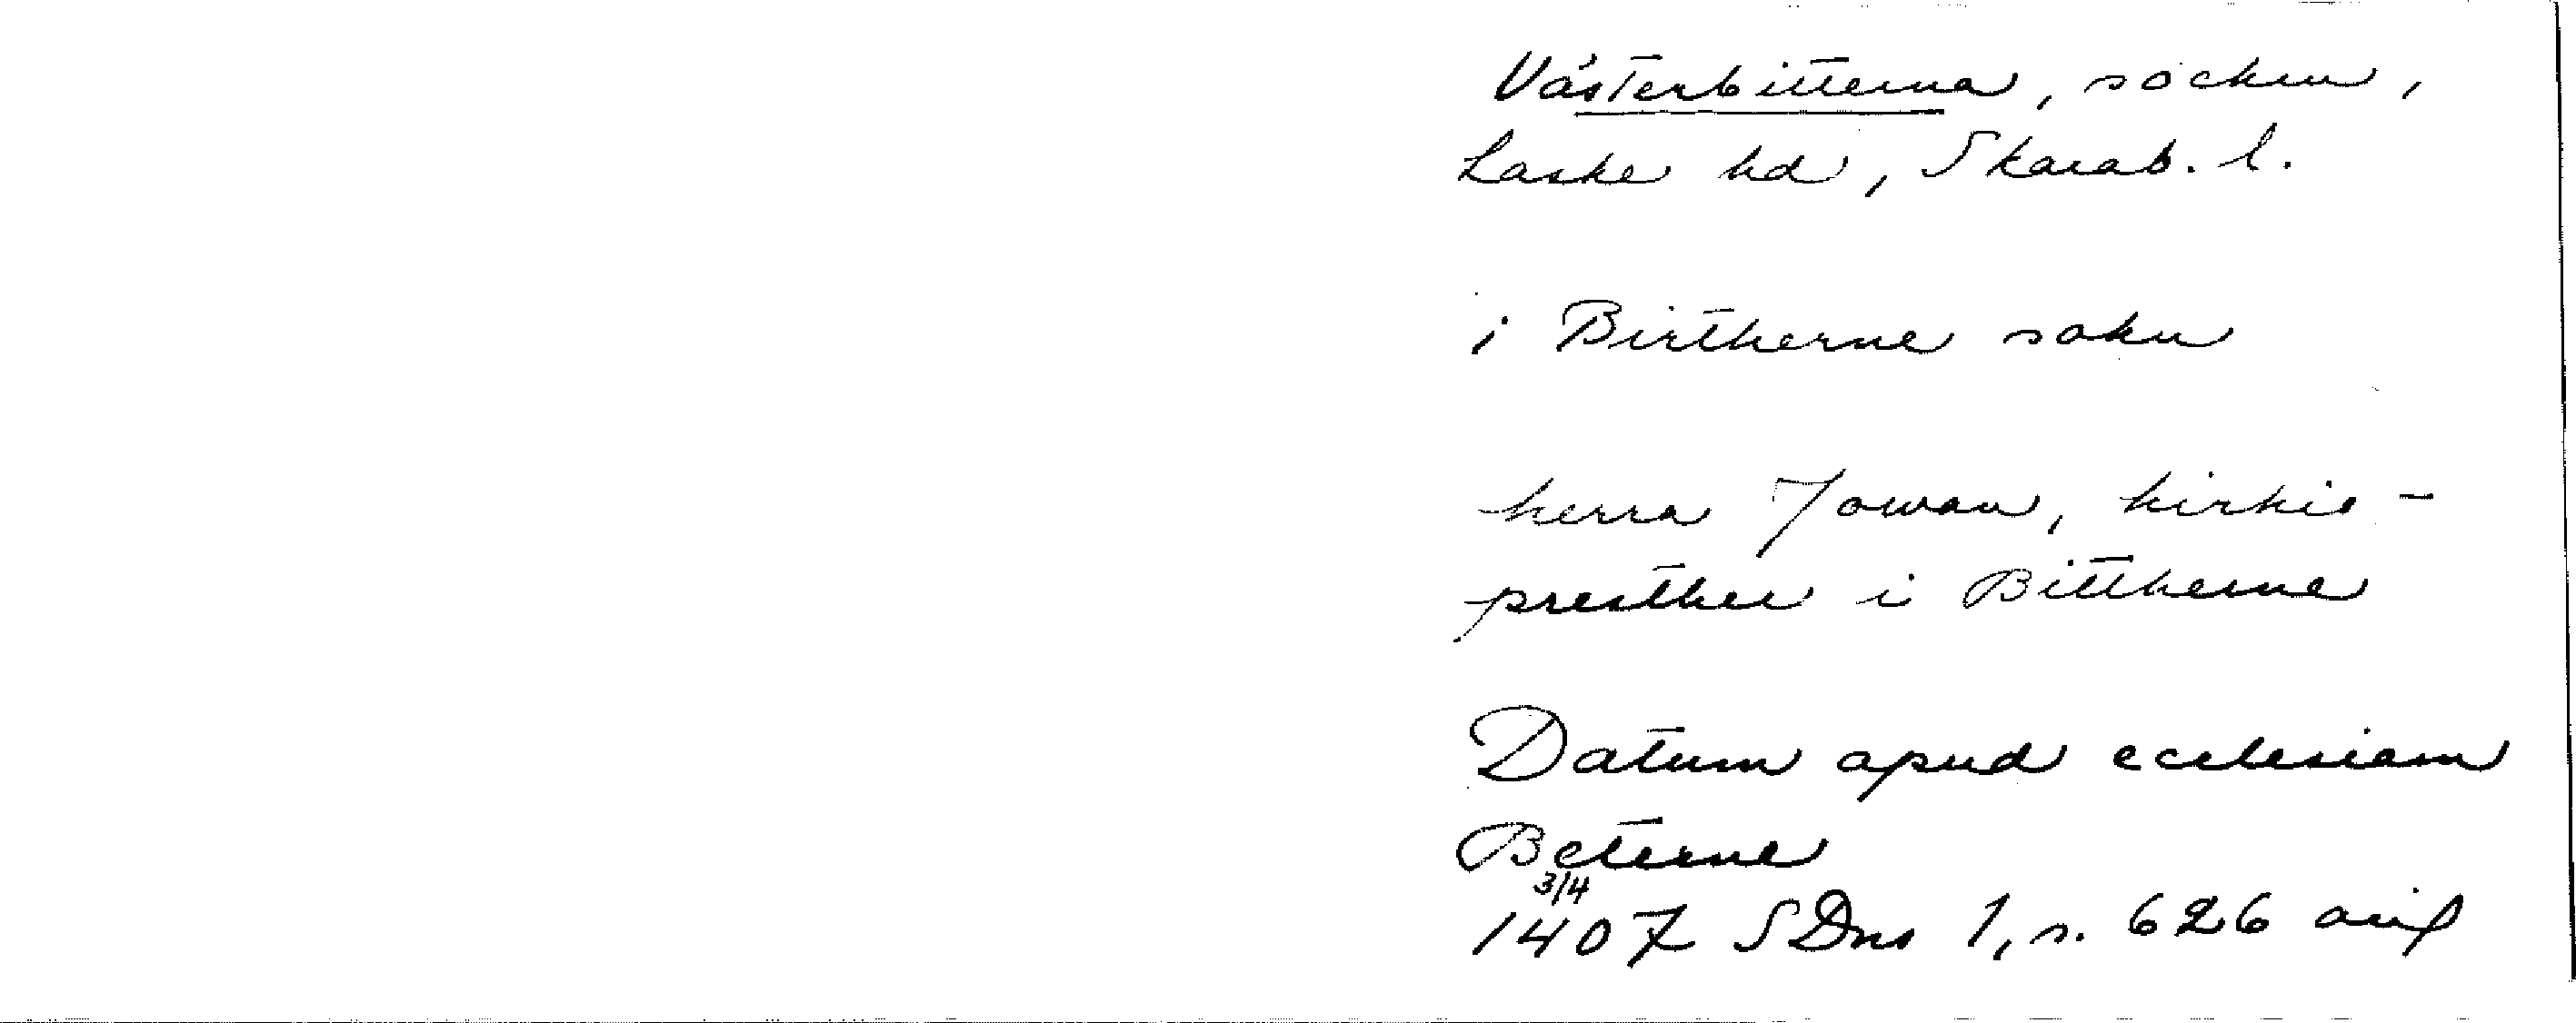 Västerbitterna, socken,
Laske hd, Skarab. l.
i Birtherne sokn
herra Jowan, kirkio-
presther i Bittherne
Datum apud ecclesiam
Beterne
3/4
1407 SDns 1, s. 626